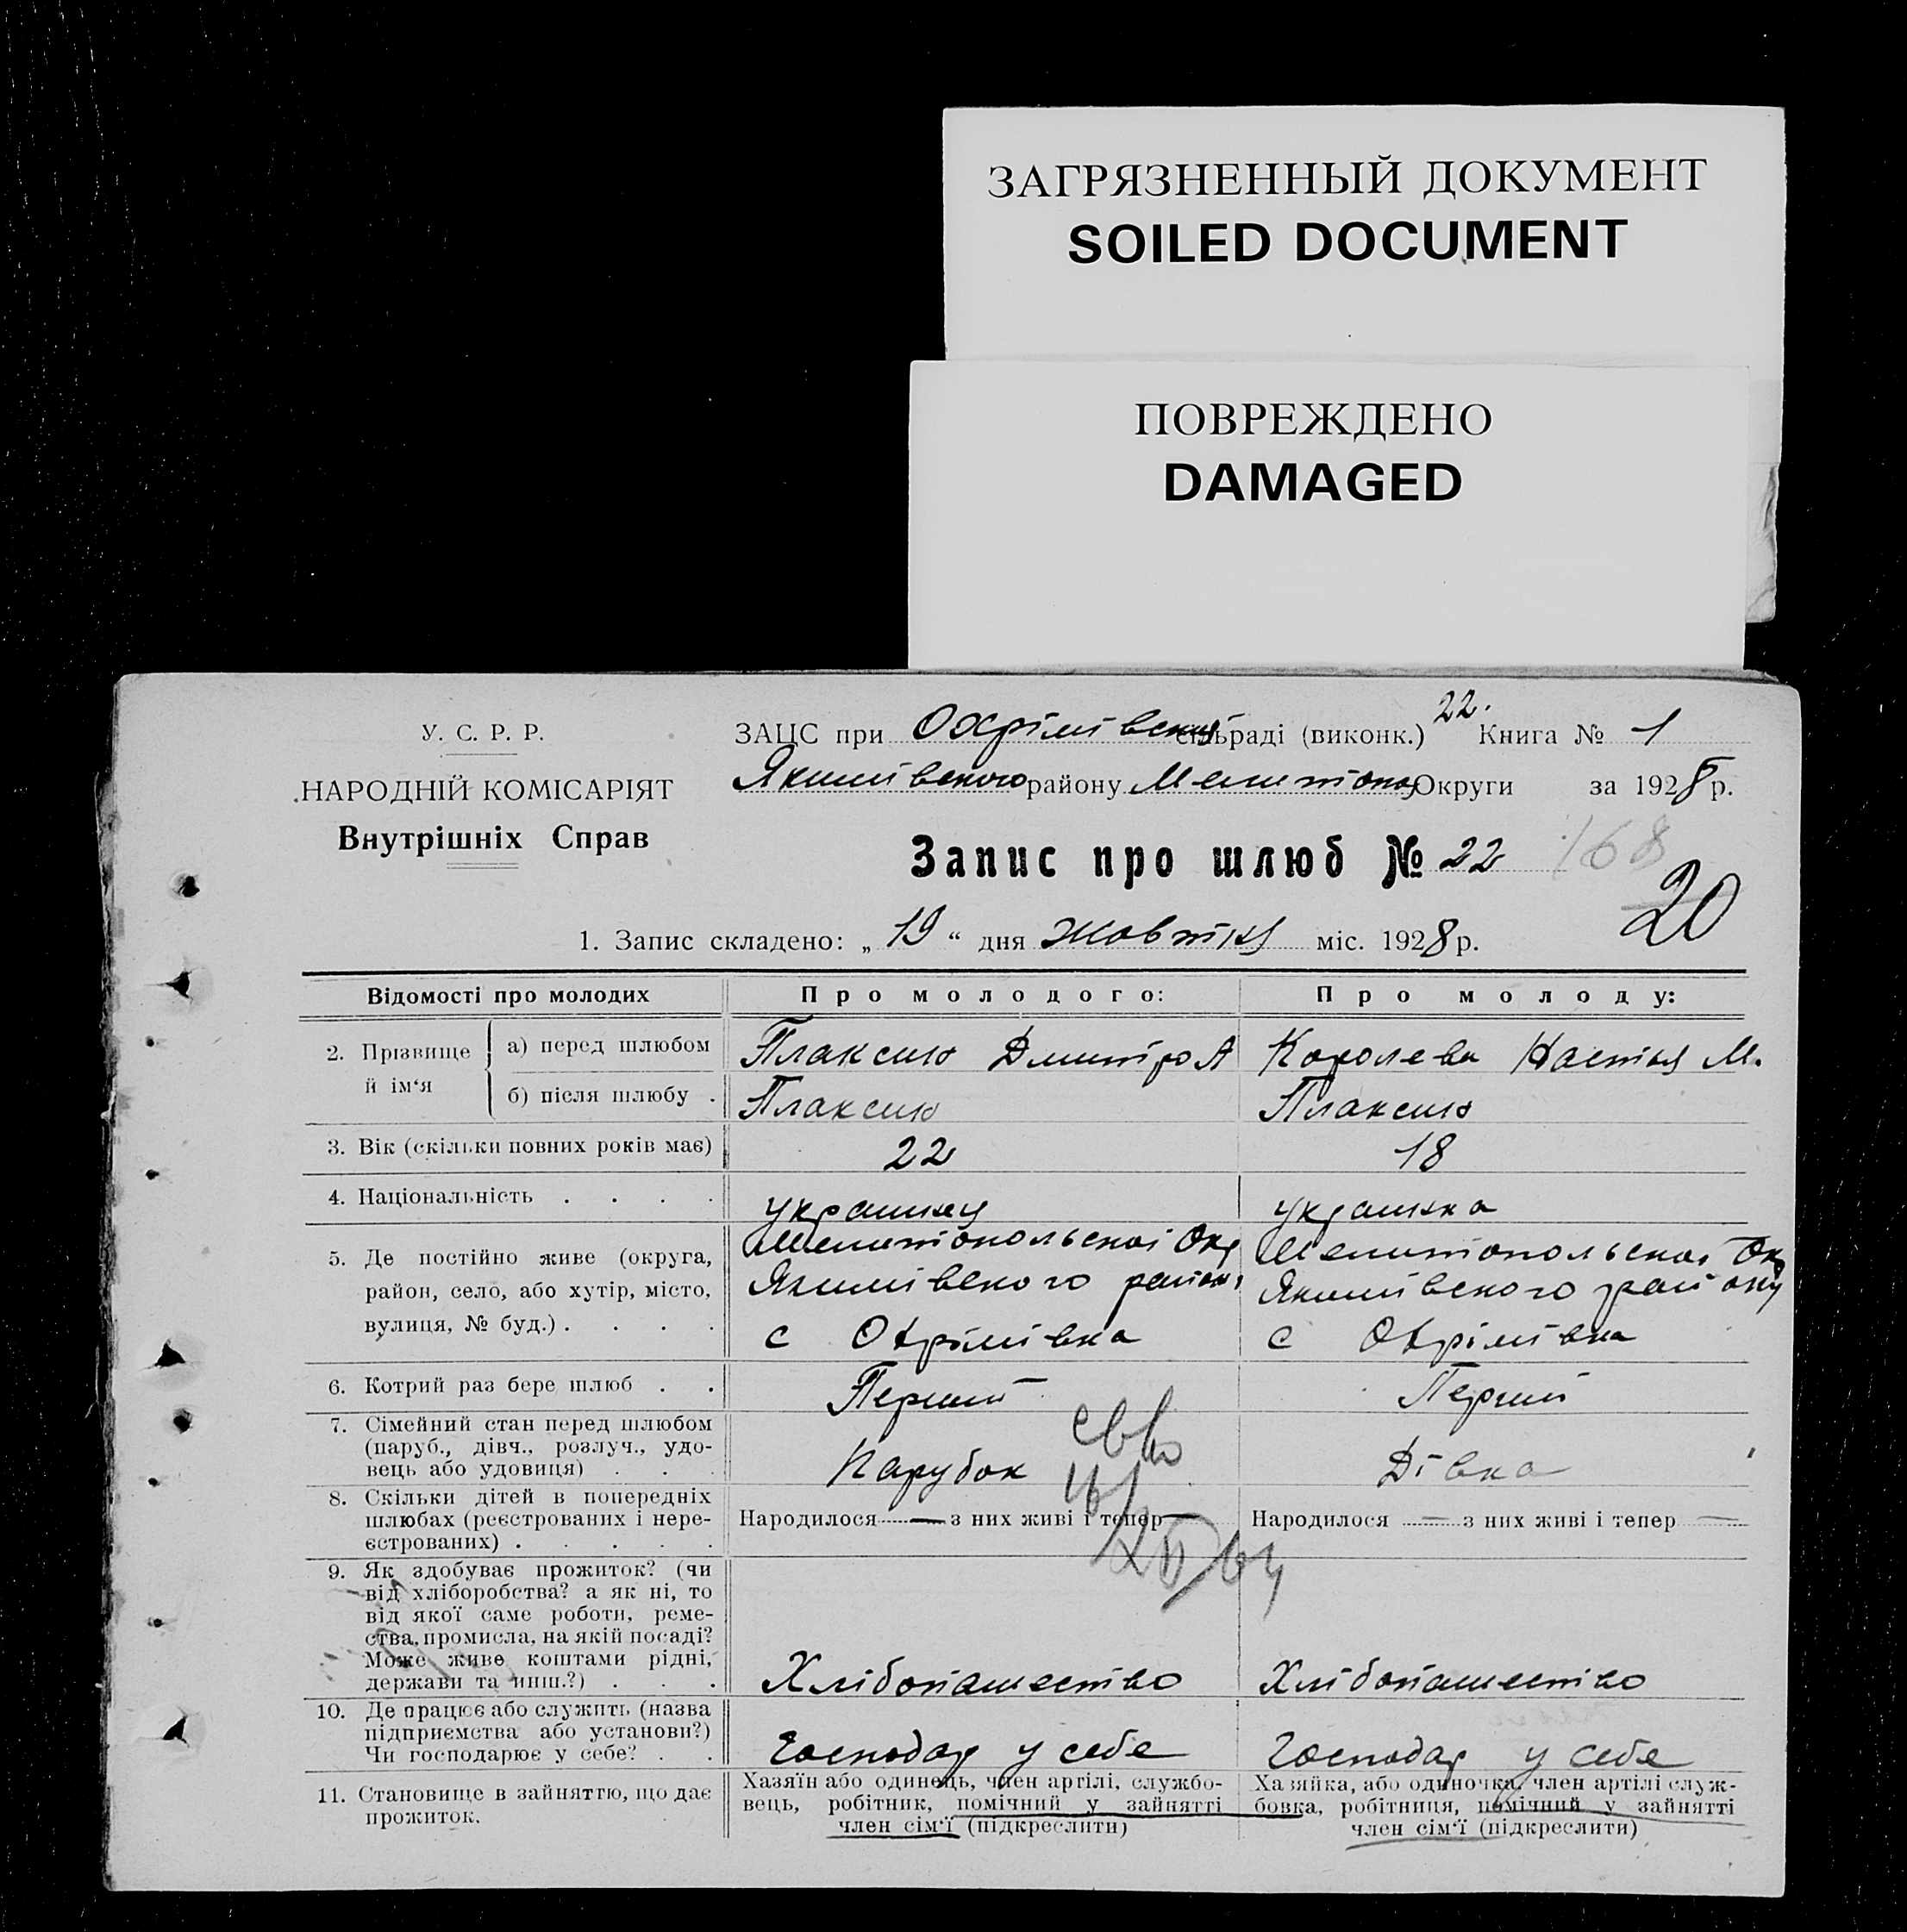 ЗАГРЯЗНЕННЫЙ ДОКУМЕНТ
SOILED DOCUMENT
ПОВРЕЖДЕНО
DAMAGED
У. С. Р. Р.
НАРОДНІЙ КОМІСАРІЯТ
Внутрішніх Справ
22.
ЗАЦС при Охрімівській сільраді (виконк.) Книга № 1
Якимівського району Мелитопол Округи за 1928 р.
Запис про шлюб № 22
168
20
1. Запис складено: „ 19 “ дня жовтня міс. 1928 р.
Відомості про молодих Про молодого: Про молоду:
2. Прізвище й ім‘я
а) перед шлюбом Плаксин Дмитро А Королева Настя М.
б) після шлюбу . Плаксин Плаксин
3. Вік (скільки повних років має) 22 18
4. Національність . . . . украинец украинка
5. Де постійно живе (округа, Мелитопольскоі Окр Мелитопольскоі Окр
район, село, або хутір, місто, Якимівського району Якимівського району
вулиця, № буд.) . . . . с Охрімівка с Охрімівка
6. Котрий раз бере шлюб . . Перший Перший
7. Сімейний стан перед шлюбом
(паруб., дівч., розлуч., удо-
вець або удовиця) . . . Парубок Дівка
8. Скільки дітей в попередніх
шлюбах (реєстрованих і нере-
єстрованих) . . . . .
Народилося — з них живі і тепер —
Народилося — з них живі і тепер —
9. Як здобуває прожиток? (чи
від хліборобства? а як ні, то
від якої саме роботи, реме-
ства, промисла, на якій посаді?
Може живе коштами рідні,
держави та инш.?) . . . Хлібопашество Хлібопашество
10. Де працює або служить (назва
підприємства або установи?)
Чи господарює у себе? . . Господар у себе Господар у себе
11. Становище в зайняттю, що дає
прожиток.
Хазяїн або одинець, член артілі, службо-
вець, робітник, помічний у зайнятті
член сім‘ї (підкреслити)
Хазяйка, або одиночка, член артілі служ-
бовка, робітниця, помічний у зайнятті
член сім‘ї (підкреслити)